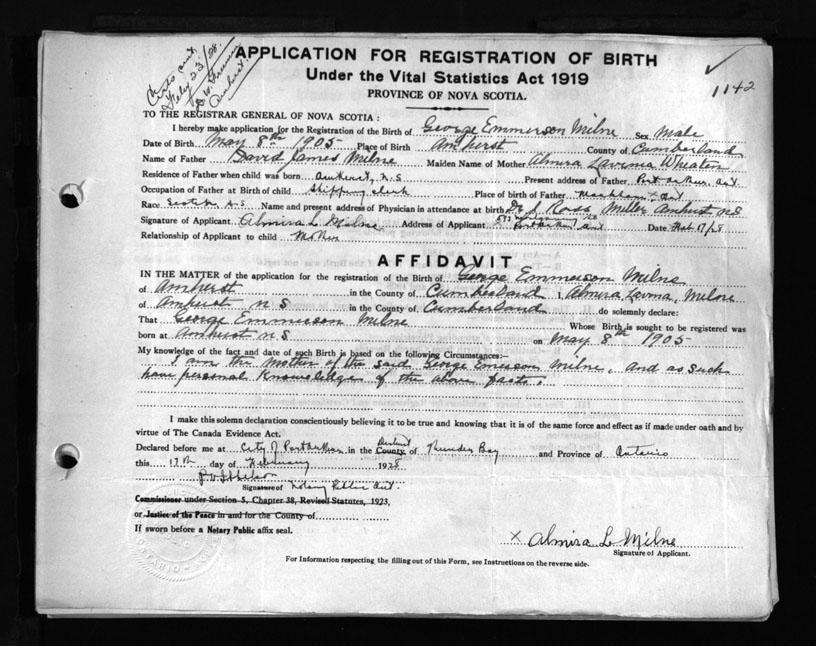 APPLICATION FOR REGISTRATION OF BIRTH
Under the Vital Statistics Act 1919
PROVINCE OF NOVA SCOTIA.
1142
Feby 23/28
Amherst
TO THE REGISTRAR GENERAL OF NOVA SCOTIA:
I hereby make application for the Registration of the Birth of George Emmerson Milne Sex Male
Date of Birth May 8th 1905 Place of Birth Amherst County of Cumberland
Name of Father David James Milne Maiden Name of Mother Almira Lavenia Wheaton
Residence of Father when child was born Amherst, N.S Present address of Father Port Arthur, Ont
Occupation of Father at Birth of child Shipping clerk Place of birth of Father Markham Ont
Race Scotch Name and present address of Physician in attendance at birth Dr Miller Amherst NS
Signature of Applicant Almira L Milne Address of Applicant Port Arthur Ont Date Feb 17/28
Relationship of Applicant to child Mother
AFFIDAVIT
IN THE MATTER of the application for the registration of the Birth of George Emmerson Milne
of Amherst in the County of Cumberland I, Almira Lavinia Milne
of Amherst N S in the County of Cumberland do solemnly declare:
That George Emmerson Milne Whose Birth is sought to be registered was
born at Amherst N S on May 8th 1905
My knowledge of the fact and date of such Birth is based on the following Circumstances:—
I am the Mother of the said George Emerson Milne, and as such
have personal Knowledge of the above facts.
I make this solemn declaration conscientiously believing it to be true and knowing that it is of the same force and effect as if made under oath and by
virtue of The Canada Evidence Act.
Declared before me at City of Port Arthur in the District County of Thunder Bay and Province of Ontario
this 17th day of February 1928
Signature of Notary Public Ont.
Commissioner under Section 5, Chapter 38, Revised Statutes, 1923,
or Justice of the Peace in and for the County of
If sworn before a Notary Public affix seal.
x Almira L Milne
Signature of Applicant.
For Information respecting the filling out of this Form, see Instructions on the reverse side.